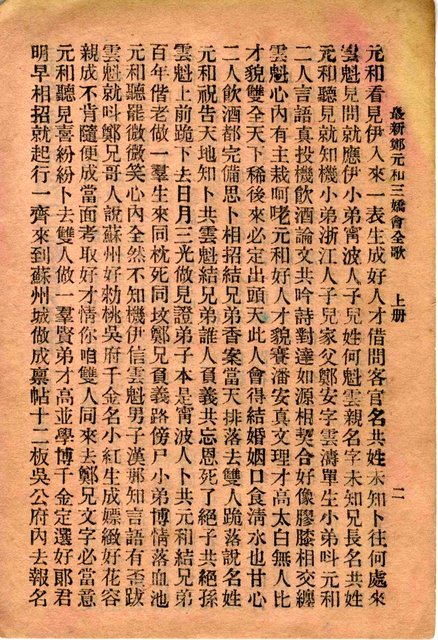 最新鄭元和三嬌會全歌 上册 二
元和看見伊入來一表生成好人才借問客官名共姓未知卜往何處來
雲魁見問就應伊小弟寧波人子兒姓何魁雲親名字未知兄長名共姓
元和聽見就知機小弟浙江人子兒家父鄭安字雲濤單生小弟叫元和
二人言語真投機飲酒論文共吟詩對達如源相契合好像膠膝相交纏
雲魁心內有主栽呵咾元和好人才貌賽潘安真文理才高太白無人比
才貌雙全天下稀後來必定出頭天此人會得結婚姻口食清水也甘心
二人飲酒都完備思卜相招結兄弟香案當天排落去雙人跪落說名姓
元和祝告天地知卜共雲魁結兄弟誰人負義共忘恩死了絕子共絕孫
雲魁上前跪下去日月三光做見證弟子本是寧波人卜共元和結兄弟
百年偕老做一羣生來同枕死同坟鄭兄負義路傍尸小弟博情落血池
元和聽罷微微笑心內全然不知機伊信雲魁男子漢那知言語有歪跋
雲魁就叫鄭兄哥人說蘇州好勑桃吳府千金名小紅生成嫖緻好花容
親成不肯隨便成當面考取好才情你咱雙人同來去鄭兄文字必當意
元和聽見喜紛紛卜去雙人做一羣賢弟才高並學博千金定選好郎君
明早相招就起行一齊來到蘇州城做成稟帖十二板吳公府內去報名